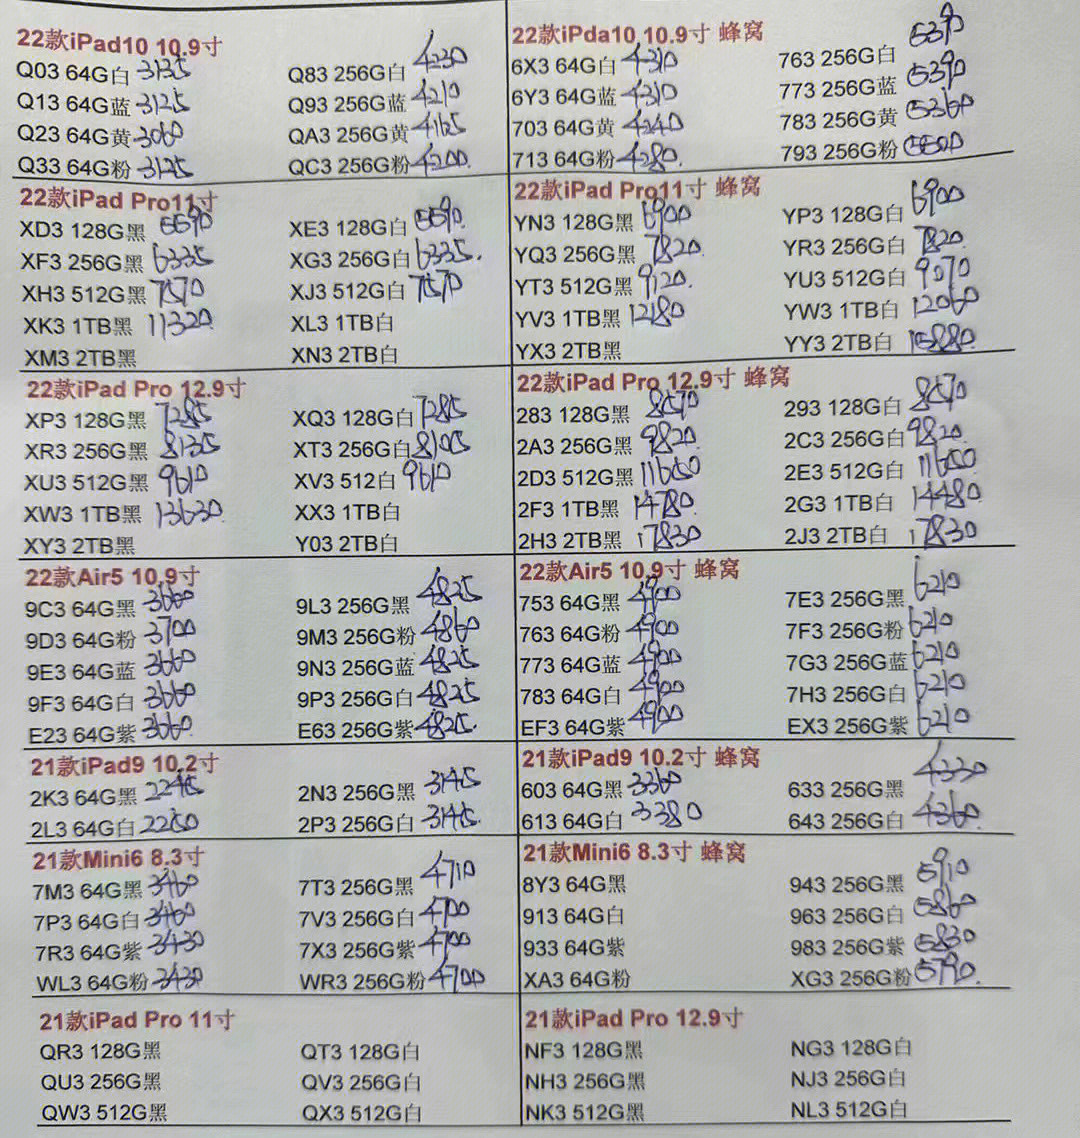 22款iPad10 10.9寸
Q03 64G白 3135 Q83 256G白 4230
Q13 64G蓝 3125 Q93 256G蓝 4210
Q23 64G黄 3060 QA3 256G黄 4165
Q33 64G粉 3125 QC3 256G粉 4200.
22款iPda10 10.9寸 蜂窝
6X3 64G白 4310 763 256G白 5390
6Y3 64G蓝 4310 773 256G蓝 5390
703 64G黄 4240 783 256G黄 5360
713 64G粉 4280. 793 256G粉
22款iPad Pro11寸
XD3 128G黑 5590 XE3 128G白 5590.
XF3 256G黑 6335 XG3 256G白 6335.
XH3 512G黑 7570 XJ3 512G白 7570
XK3 1TB黑 11320 XL3 1TB白
XM3 2TB黑 XN3 2TB白
22款iPad Pro11寸 蜂窝
YN3 128G黑 6900 YP3 128G白 6900
YQ3 256G黑 7820 YR3 256G白 7820.
YT3 512G黑 9120. YU3 512G白 9070
YV3 1TB黑 12180 YW3 1TB白 12060
YX3 2TB黑 YY3 2TB白 15880.
22款iPad Pro 12.9寸
XP3 128G黑 7285 XQ3 128G白 7285
XR3 256G黑 8135 XT3 256G白 8105
XU3 512G黑 9610 XV3 512白 9610
XW3 1TB黑 13630. XX3 1TB白
XY3 2TB黑 Y03 2TB白
22款iPad Pro 12.9寸 蜂窝
283 128G黑 8570 293 128G白 8570
2A3 256G黑 9820. 2C3 256G白 9820.
2D3 512G黑 11650 2E3 512G白 11650
2F3 1TB黑 14780. 2G3 1TB白 14480
2H3 2TB黑 17830 2J3 2TB白 17830
22款Air5 10.9寸
9C3 64G黑 3660 9L3 256G黑 4825
9D3 64G粉 3700 9M3 256G粉 4860
9E3 64G蓝 3660 9N3 256G蓝 4825
9F3 64G白 3660 9P3 256G白 4825
E23 64G紫 3660. E63 256G紫 4825.
22款Air5 10.9寸 蜂窝
753 64G黑 4900 7E3 256G黑 6210
763 64G粉 4900 7F3 256G粉 6210
773 64G蓝 4900 7G3 256G蓝 6210
783 64G白 4900 7H3 256G白 6210
EF3 64G紫 4900 EX3 256G紫 6210
21款iPad9 10.2寸
2K3 64G黑 2245 2N3 256G黑 3145
2L3 64G白 2250 2P3 256G白 3145.
21款iPad9 10.2寸 蜂窝
603 64G黑 3360 633 256G黑 4330
613 64G白 3380 643 256G白 4360.
21款Mini6 8.3寸
7M3 64G黑 3460 7T3 256G黑 4710
7P3 64G白 3460 7V3 256G白 4700
7R3 64G紫 3430 7X3 256G紫 4700
WL3 64G粉 3430 WR3 256G粉 4700
21款Mini6 8.3寸 蜂窝
8Y3 64G黑 943 256G黑 5910
913 64G白 963 256G白 5860
933 64G紫 983 256G紫 5830
XA3 64G粉 XG3 256G粉 5790.
21款iPad Pro 11寸
QR3 128G黑 QT3 128G白
QU3 256G黑 QV3 256G白
QW3 512G黑 QX3 512G白
21款iPad Pro 12.9寸
NF3 128G黑 NG3 128G白
NH3 256G黑 NJ3 256G白
NK3 512G黑 NL3 512G白